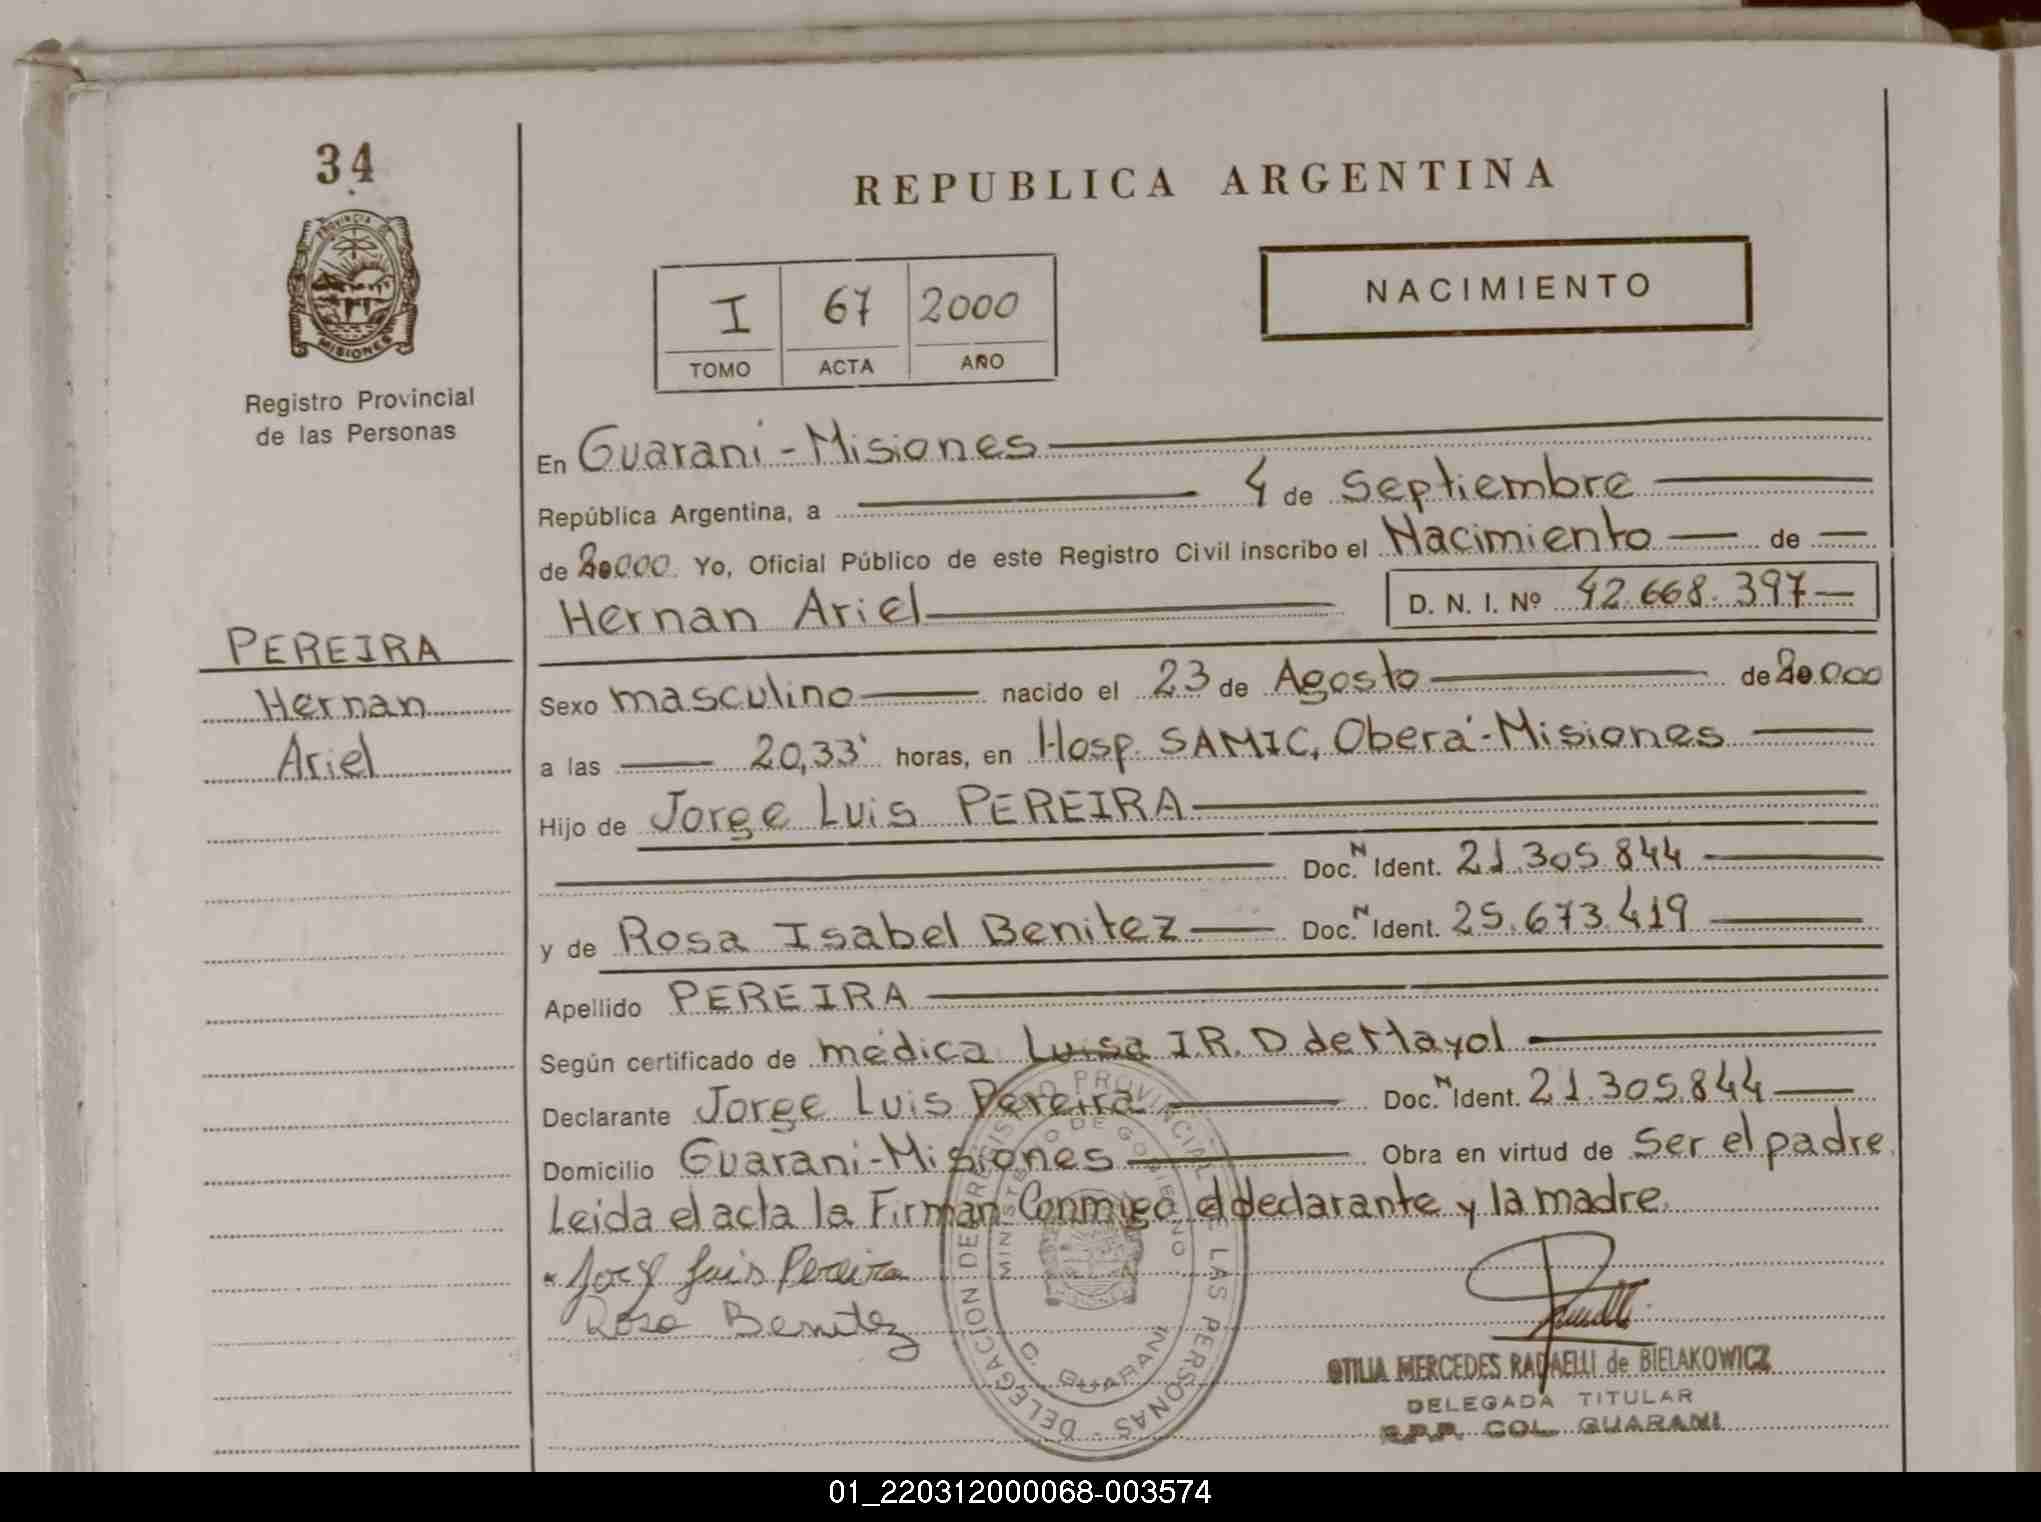 34
PROVINCIA DE
MISIONES
Registro Provincial
de las Personas
PEREIRA
Hernan
Ariel
REPUBLICA ARGENTINA
I 67 2000
TOMO ACTA AÑO
NACIMIENTO
En Guarani - Misiones
República Argentina, a 4 de Septiembre
de 2000 Yo, Oficial Público de este Registro Civil inscribo el Nacimiento de
Hernan Ariel D. N. I. Nº 42.668.397
Sexo masculino nacido el 23 de Agosto de 2000
a las 20,33' horas, en Hosp. SAMIC, Oberá - Misiones
Hijo de Jorge Luis PEREIRA
Doc. N Ident. 21.305.844
y de Rosa Isabel Benitez Doc. N Ident. 25.673.419
Apellido PEREIRA
Según certificado de médica Luisa I.R. D de Mayol
Declarante Jorge Luis Pereira Doc. N Ident. 21.305.844
Domicilio Guarani - Misiones Obra en virtud de Ser el padre.
Leida el acta la Firman Conmigo el declarante y la madre.
Jorge Luis Pereira
Rosa Benitez
DELEGACION DE REGISTRO PROVINCIAL DE LAS PERSONAS -
MINISTERIO DE GOBIERNO
C. GUARANI
OTILIA MERCEDES RADAELLI de BIELAKOWICZ
DELEGADA TITULAR
R.P.P. COL. GUARANI
01_220312000068-003574